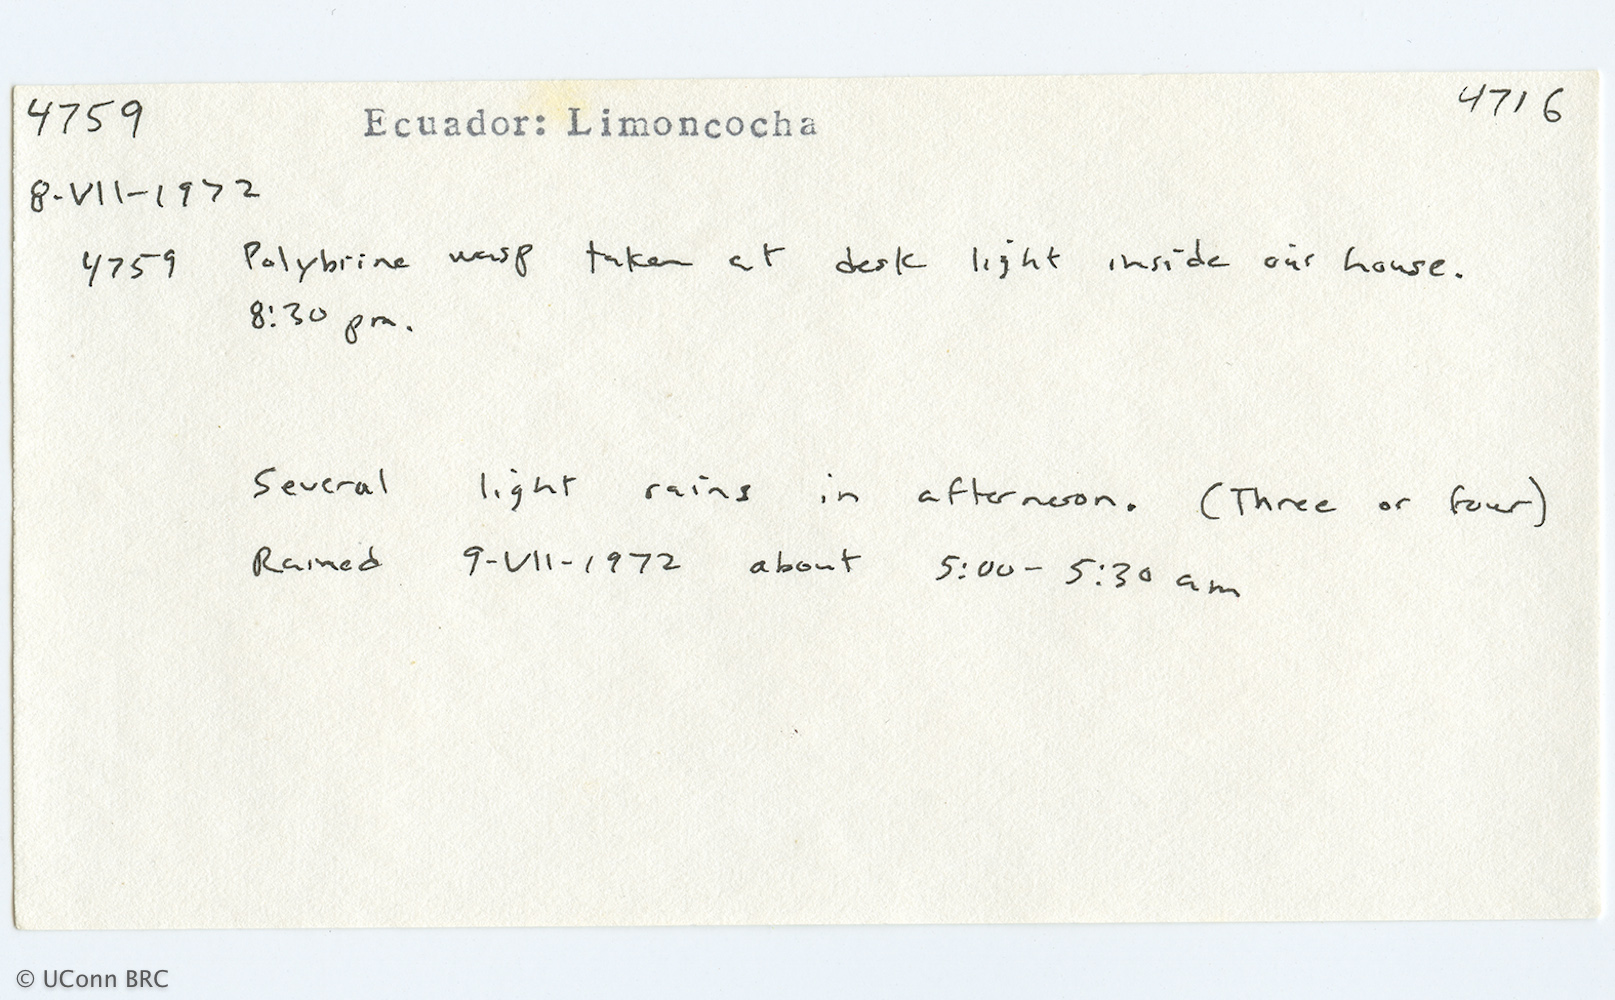 4759 Ecuador: Limoncocha 4716
8-VII-1972
4759 Polybrine wasp taken at desk light inside our house.
8:30 pm.
Several light rains in afternoon. (Three or four)
Rained 9-VII-1972 about 5:00-5:30 am
© UConn BRC